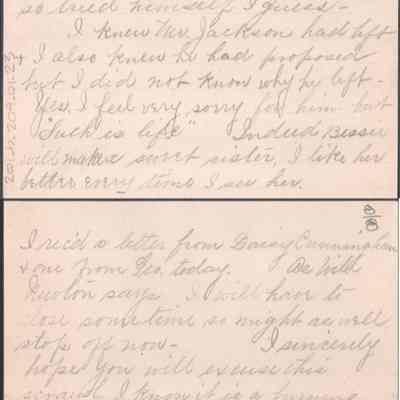 so tired himself I guess -
I knew Mr. Jackson had left
& I also knew he had proposed
but I did not know why he left -
Yes, I feel very sorry for him but
"Such is life" Indeed Bessie
will make a sweet sister, I like her
better every time I see her.
I rec'd a letter from Daisy Cunningham
& one from Geo. today. As Will
Newlon says I will have to
close sometime so might as well
stop off now - I sincerely
hope you will excuse this
scrawl I know it is a burning